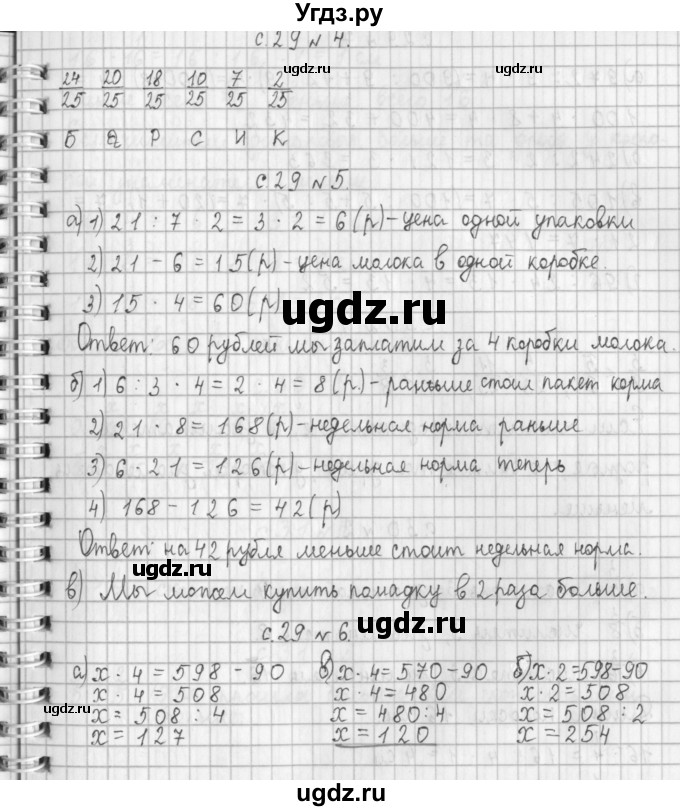 Угдз.ру
с.29 № 4.
24/25 20/25 18/25 10/25 7/25 2/25
Б а Р С И К
с.29 № 5.
а) 1) 21 : 7 · 2 = 3 · 2 = 6 (р) - цена одной упаковки
2) 21 - 6 = 15 (р) - цена молока в одной коробке.
3) 15 · 4 = 60 (р)
Ответ: 60 рублей мы заплатим за 4 коробки молока.
б) 1) 6 : 3 · 4 = 2 · 4 = 8 (р.) - раньше стоил пакет корма
2) 21 · 8 = 168 (р) - недельная норма раньше
3) 6 · 21 = 126 (р) - недельная норма теперь
4) 168 - 126 = 42 (р)
Ответ: на 42 рубля меньше стоит недельная норма.
в) Мы можем купить помадку в 2 раза больше.
с.29 № 6.
а) x · 4 = 598 - 90 в) x · 4 = 570 - 90 б) x · 2 = 598 - 90
x · 4 = 508 x · 4 = 480 x · 2 = 508
x = 508 : 4 x = 480 : 4 x = 508 : 2
x = 127 x = 120 x = 254
ugdz.ru
ugdz.ru
ugdz.ru
ugdz.ru
ugdz.ru
ugdz.ru
ugdz.ru
ugdz.ru